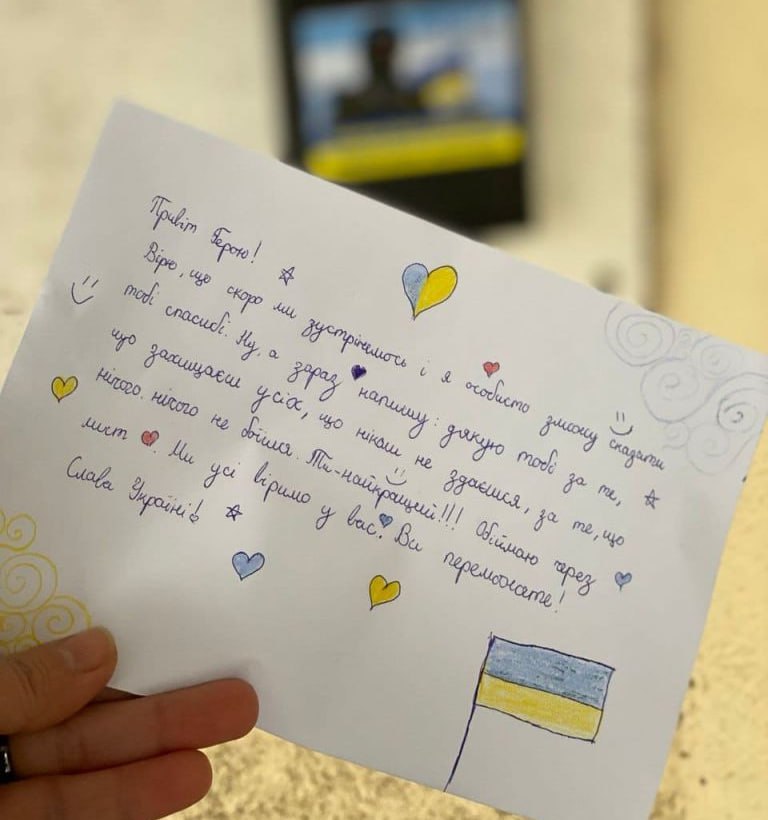 Привіт Герою!
Вірю, що скоро ми зустрінемось і я особисто зможу сказати
тобі спасибі. Ну, а зараз напишу: дякую тобі за те,
що захищаєш усіх, що ніколи не здаєшся, за те, що
нічого. нічого не боїшся. Ти-найкращий!!! Обіймаю через
лист. Ми усі віримо у вас. Ви переможете!
Слава Україні!